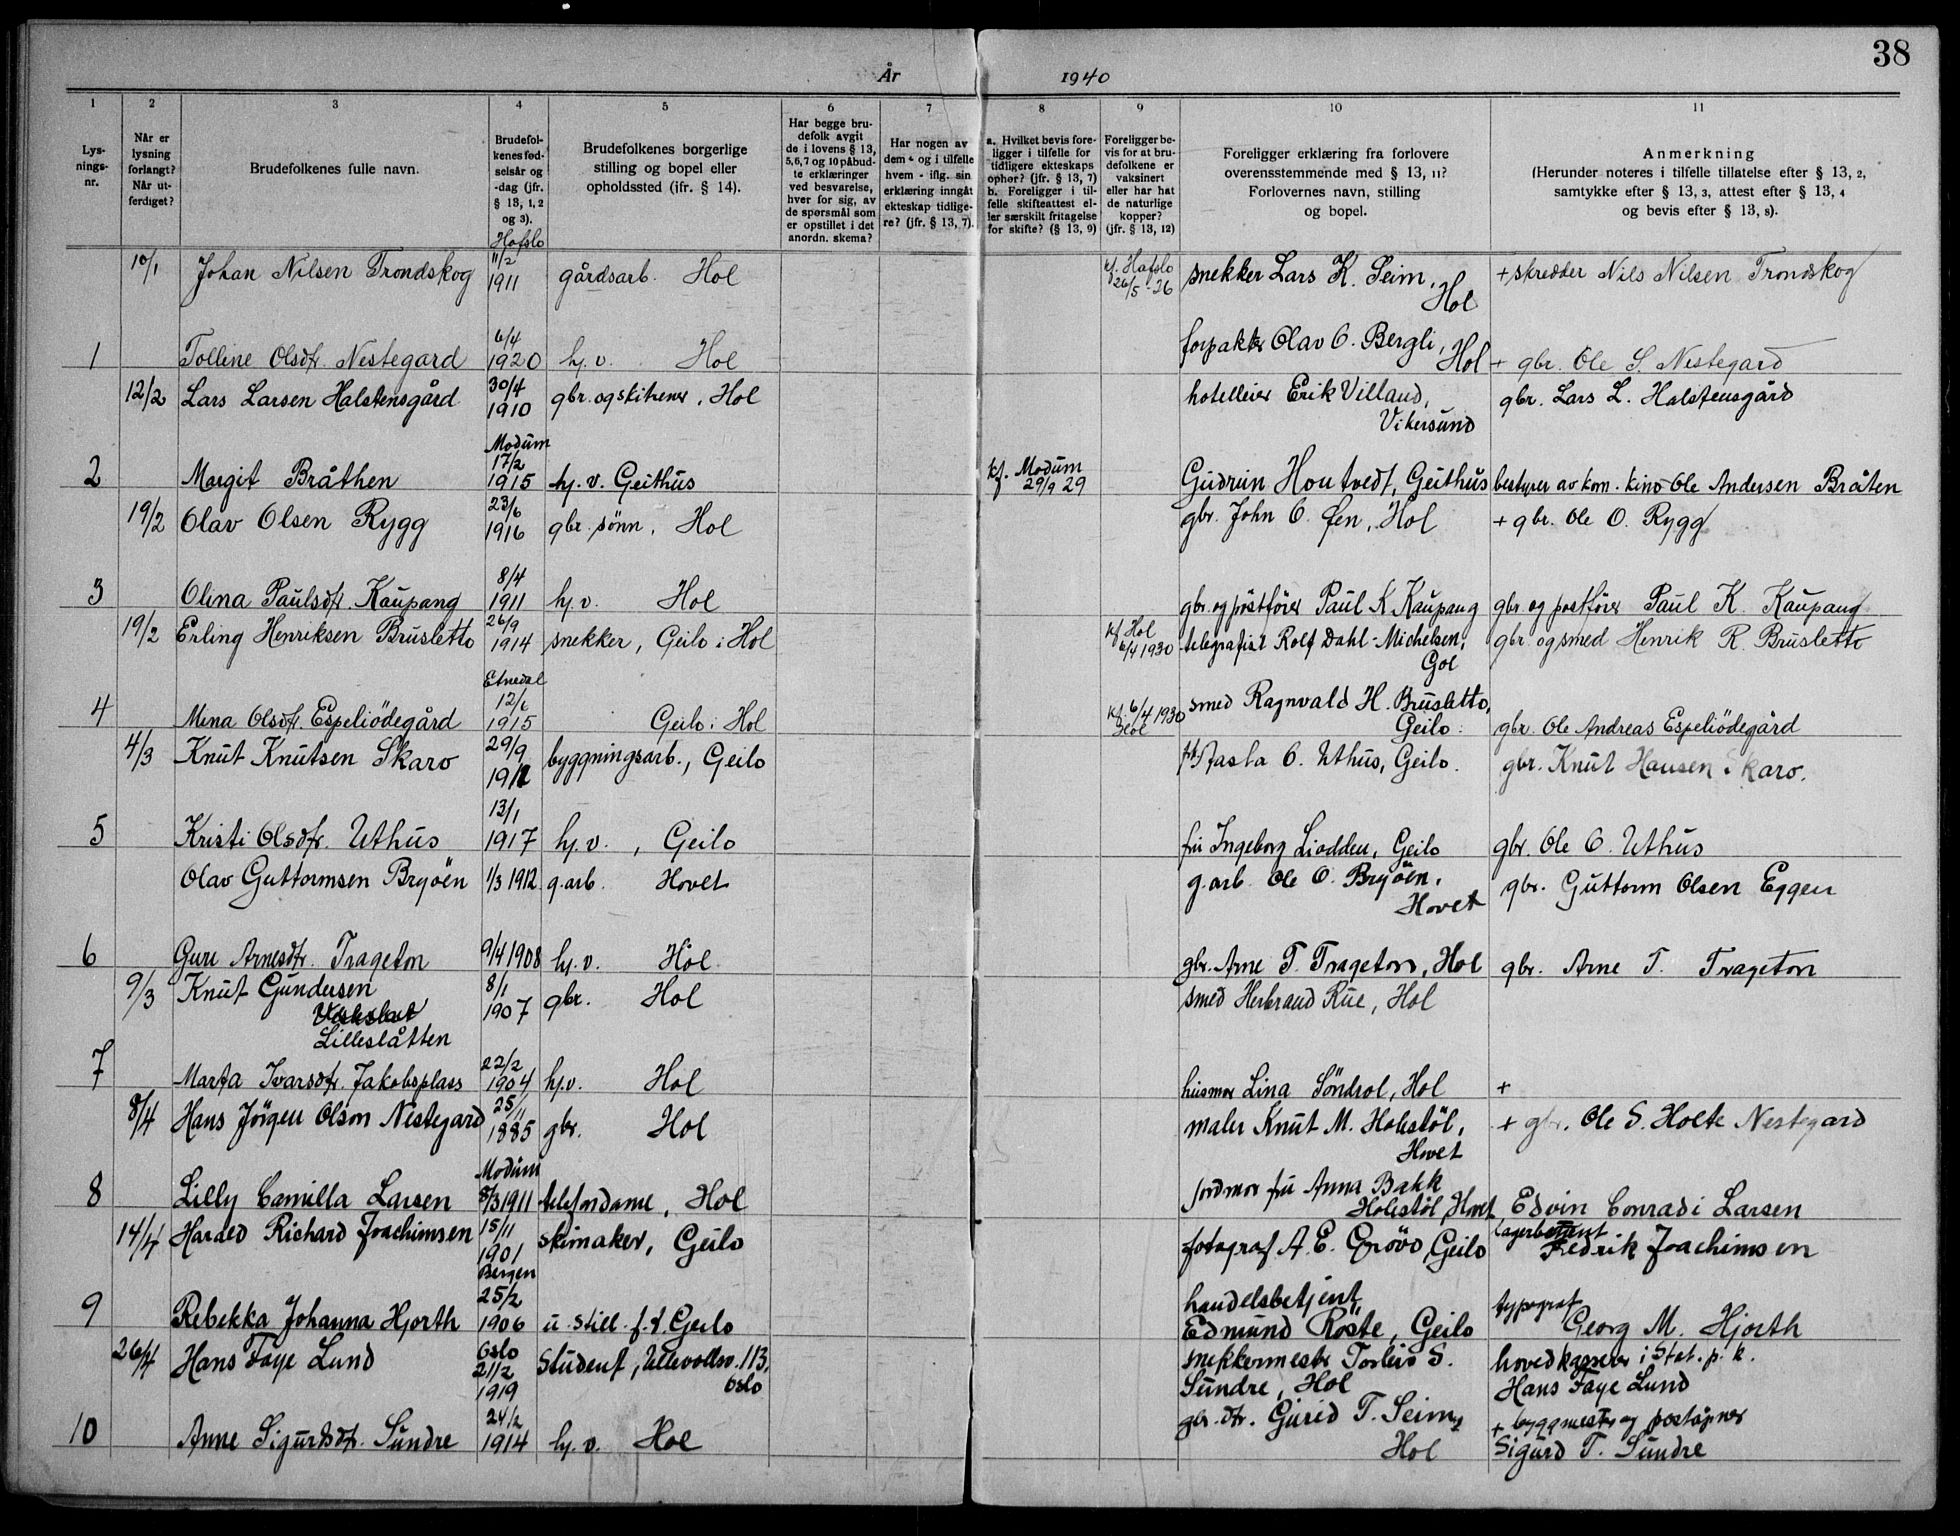 38
År 1940
1 2 3 4 5 6 7 8 9 10 11
Lys-
nings-
nr.
Når er
lysning
forlangt?
Når ut-
ferdiget?
Brudefolkenes fulle navn.
Brudefol-
kenes fød-
selsår og
-dag (jfr.
§ 13, 1, 2
og 3).
Brudefolkenes borgerlige
stilling og bopel eller
opholdssted (jfr. § 14).
Har begge bru-
defolk avgit
de i lovens § 13,
5,6,7 og 10 påbud-
te erklæringer
ved besvarelse,
hver for sig, av
de spørsmål som
er opstillet i det
anordn. skema?
Har nogen av
dem - og i tilfelle
hvem - iflg. sin
erklæring inngått
ekteskap tidlige-
re? (jfr. § 13, 7).
a. Hvilket bevis fore-
ligger i tilfelle for
tidligere ekteskaps
ophør? (jfr. § 13, 7)
b. Foreligger i til-
felle skifteattest el-
ler særskilt fritagelse
for skifte? (§ 13, 9)
Foreligger be-
vis for at bru-
defolkene er
vaksinert
eller har hat
de naturlige
kopper?
(jfr. § 13, 12)
Foreligger erklæring fra forlovere
overensstemmende med § 13, 11?
Forlovernes navn, stilling
og bopel.
Anmerkning
(Herunder noteres i tilfelle tillatelse efter § 13, 2,
samtykke efter § 13, 3, attest efter § 13, 4
og bevis efter § 13, 8).
10/1 Johan Nilsen Trondskog Hafslo 11/2 1911 gårdsarb. Hol kf. Hafslo 26/5-26 snekker Lars K. Seim, Hol + skredder Nils Nilsen Trondskog
1 Tolline Olsdtr. Nestegard 6/4 1920 hj. v. Hol forpakter Olav O. Bergli, Hol + gbr. Ole S. Nestegard
12/2 Lars Larsen Halstensgård 30/4 1910 gbr. og skitrener, Hol hotelleier Erik Villand, Vikersund gbr. Lars L. Halstensgård
2 Margit Bråthen Modum 17/2 1915 hj. v. Geithus kf. Modum 29/9 29 Gudrun Houtvedt, Geithus bestyrer av kom. kino Ole Andersen Bråten
19/2 Olav Olsen Rygg 23/6 1916 gbr. sønn, Hol gbr. John O. Øen, Hol + gbr. Ole O. Rygg
3 Olena Paulsdtr. Kaupang 8/4 1911 hj. v. Hol gbr. og postfører Paul K Kaupang gbr. og postfører Paul K. Kaupang
19/2 Erling Henriksen Brusletto 26/9 1914 snekker, Geilo i Hol kf. Hol 6/4 1930 telegrafist Rolf Dahl-Michelsen, Gol gbr og smed Henrik R. Brusletto
4 Mina Olsdtr. Espeliödegård Etnedal 12/6 1915 Geilo i Hol kf. 6/4 1930 Hol smed Ragnvald H. Brusletto, Geilo gbr. Ole Andreas Espeliödegård
4/3 Knut Knutsen Skaro 29/9 1912 byggningsarb., Geilo Aasta O. Uthus, Geilo. gbr. Knut Hansen Skaro.
5 Kristi Olsdtr. Uthus 13/1 1917 hj. v. , Geilo fru Ingeborg Liodden, Geilo gbr. Ole O. Uthus
Olav Guttormsen Bryöen 1/3 1912 g.arb. Hovet g.arb. Ole O. Bryöen, Hovet gbr. Guttorm Olsen Eggen
6 Guri Arnesdtr. Trageton 9/4 1908 hj. v. Hol gbr. Arne T. Trageton, Hol gbr. Arne T. Trageton
9/3 Knut Gundersen Lilleslåtten 8/1 1907 gbr. Hol smed Herbrand Rue, Hol
7 Marta Ivarsdtr. Jakobsplass 22/2 1904 hj.v. Hol husmor Lina Söndrol, Hol +
8/4 Hans Jörgen Olson Nestegard 25/11 1885 gbr. Hol maler Knut M. Holestöl, Hovet + gbr. Ole S. Holte Nestegard
8 Lilly Camilla Larsen Modum 8/3 1911 telefondame, Hol jordmor fru Anna Bakk Holestöl, Hovet Edvin Conradi Larsen
14/4 Harald Richard Joachimsen 15/11 1901 skimaker, Geilo fotograf A. E. Grövo, Geilo lagerbetjent Fredrik Joachimsen
9 Rebekka Johanna Hjorth Bergen 25/2 1906 u. still. f. t. Geilo handelsbetjent Edmund Röste, Geilo typograf Georg M. Hjorth
26/4 Hans Faye Lund Oslo 21/2 1919 Student, Ullevollsv. 113, Oslo snekkermester Torleiv S. Sundre, Hol hovedkasserer i Stat. p. k. Hans Faye Lund
10 Anne Sigurdsdtr. Sundre 24/2 1914 hj. v. Hol gbr. dtr. Gurid T. Seim, Hol + byggmester og poståpner Sigurd T. Sundre